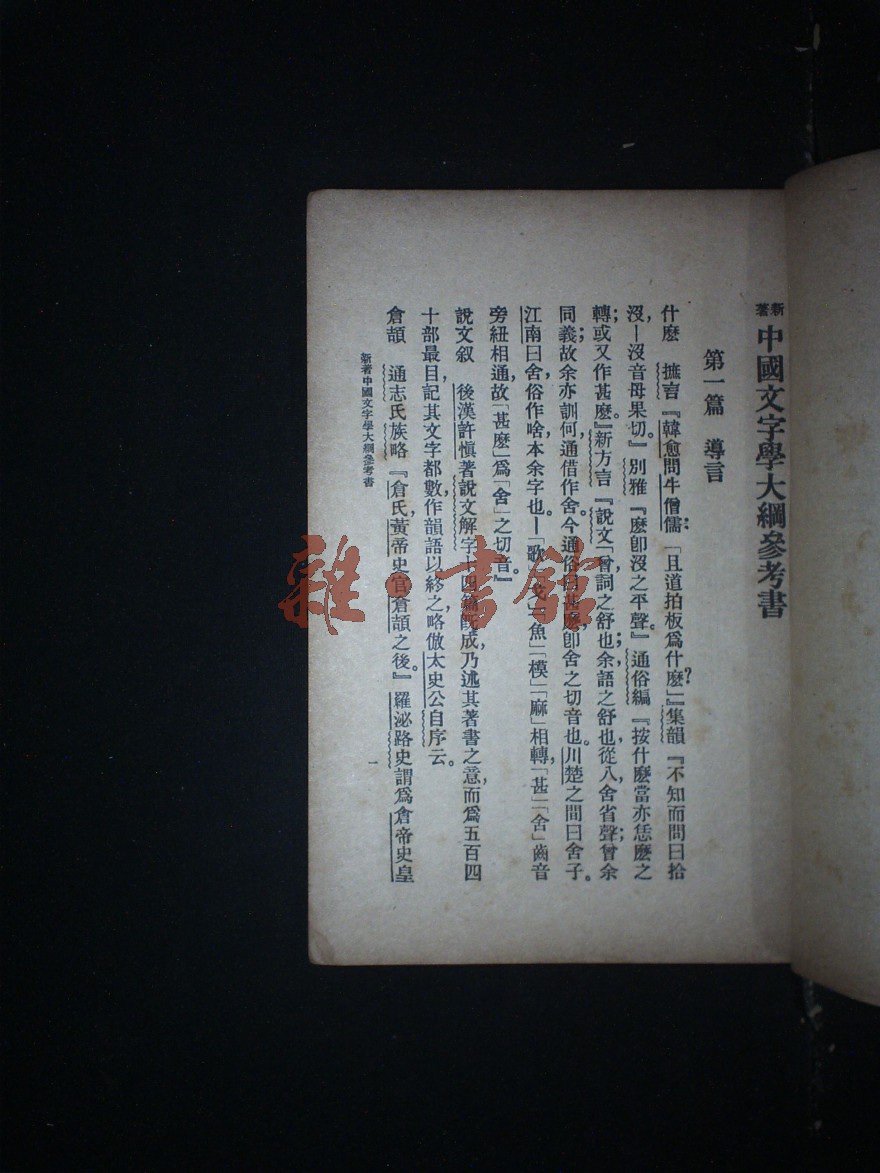 新著中國文字學大綱參考書
第一篇　導言
什麽　摭言『韓愈問牛僧儒：「且道拍板爲什麽？」』集韻『不知而問曰拾
沒，—沒音母果切。』別雅『麽卽沒之平聲。』通俗編『按什麽當亦恁麽之
轉；或又作甚麽。』新方言『說文「曾，詞之舒也；余，語之舒也，從八，舍省聲；曾余
同義；故余亦訓何，通借作舍。今通俗曰甚麽，卽舍之切音也。川楚之間曰舍子。
江南曰舍，俗作啥，本余字也。—「歌」「戈」「魚」「模」「麻」相轉，「甚」「舍」齒音
旁紐相通，故「甚麽」爲「舍」之切音。』
說文叙　後漢許愼著說文解字十四篇旣成，乃述其著書之意，而爲五百四
十部最目，記其文字都數，作韻語以終之，略倣太史公自序云。
倉頡　通志氏族略『倉氏，黃帝史官倉頡之後。』羅泌路史謂爲倉帝史皇
新著中國文字學大綱參考書
一
雜·書館